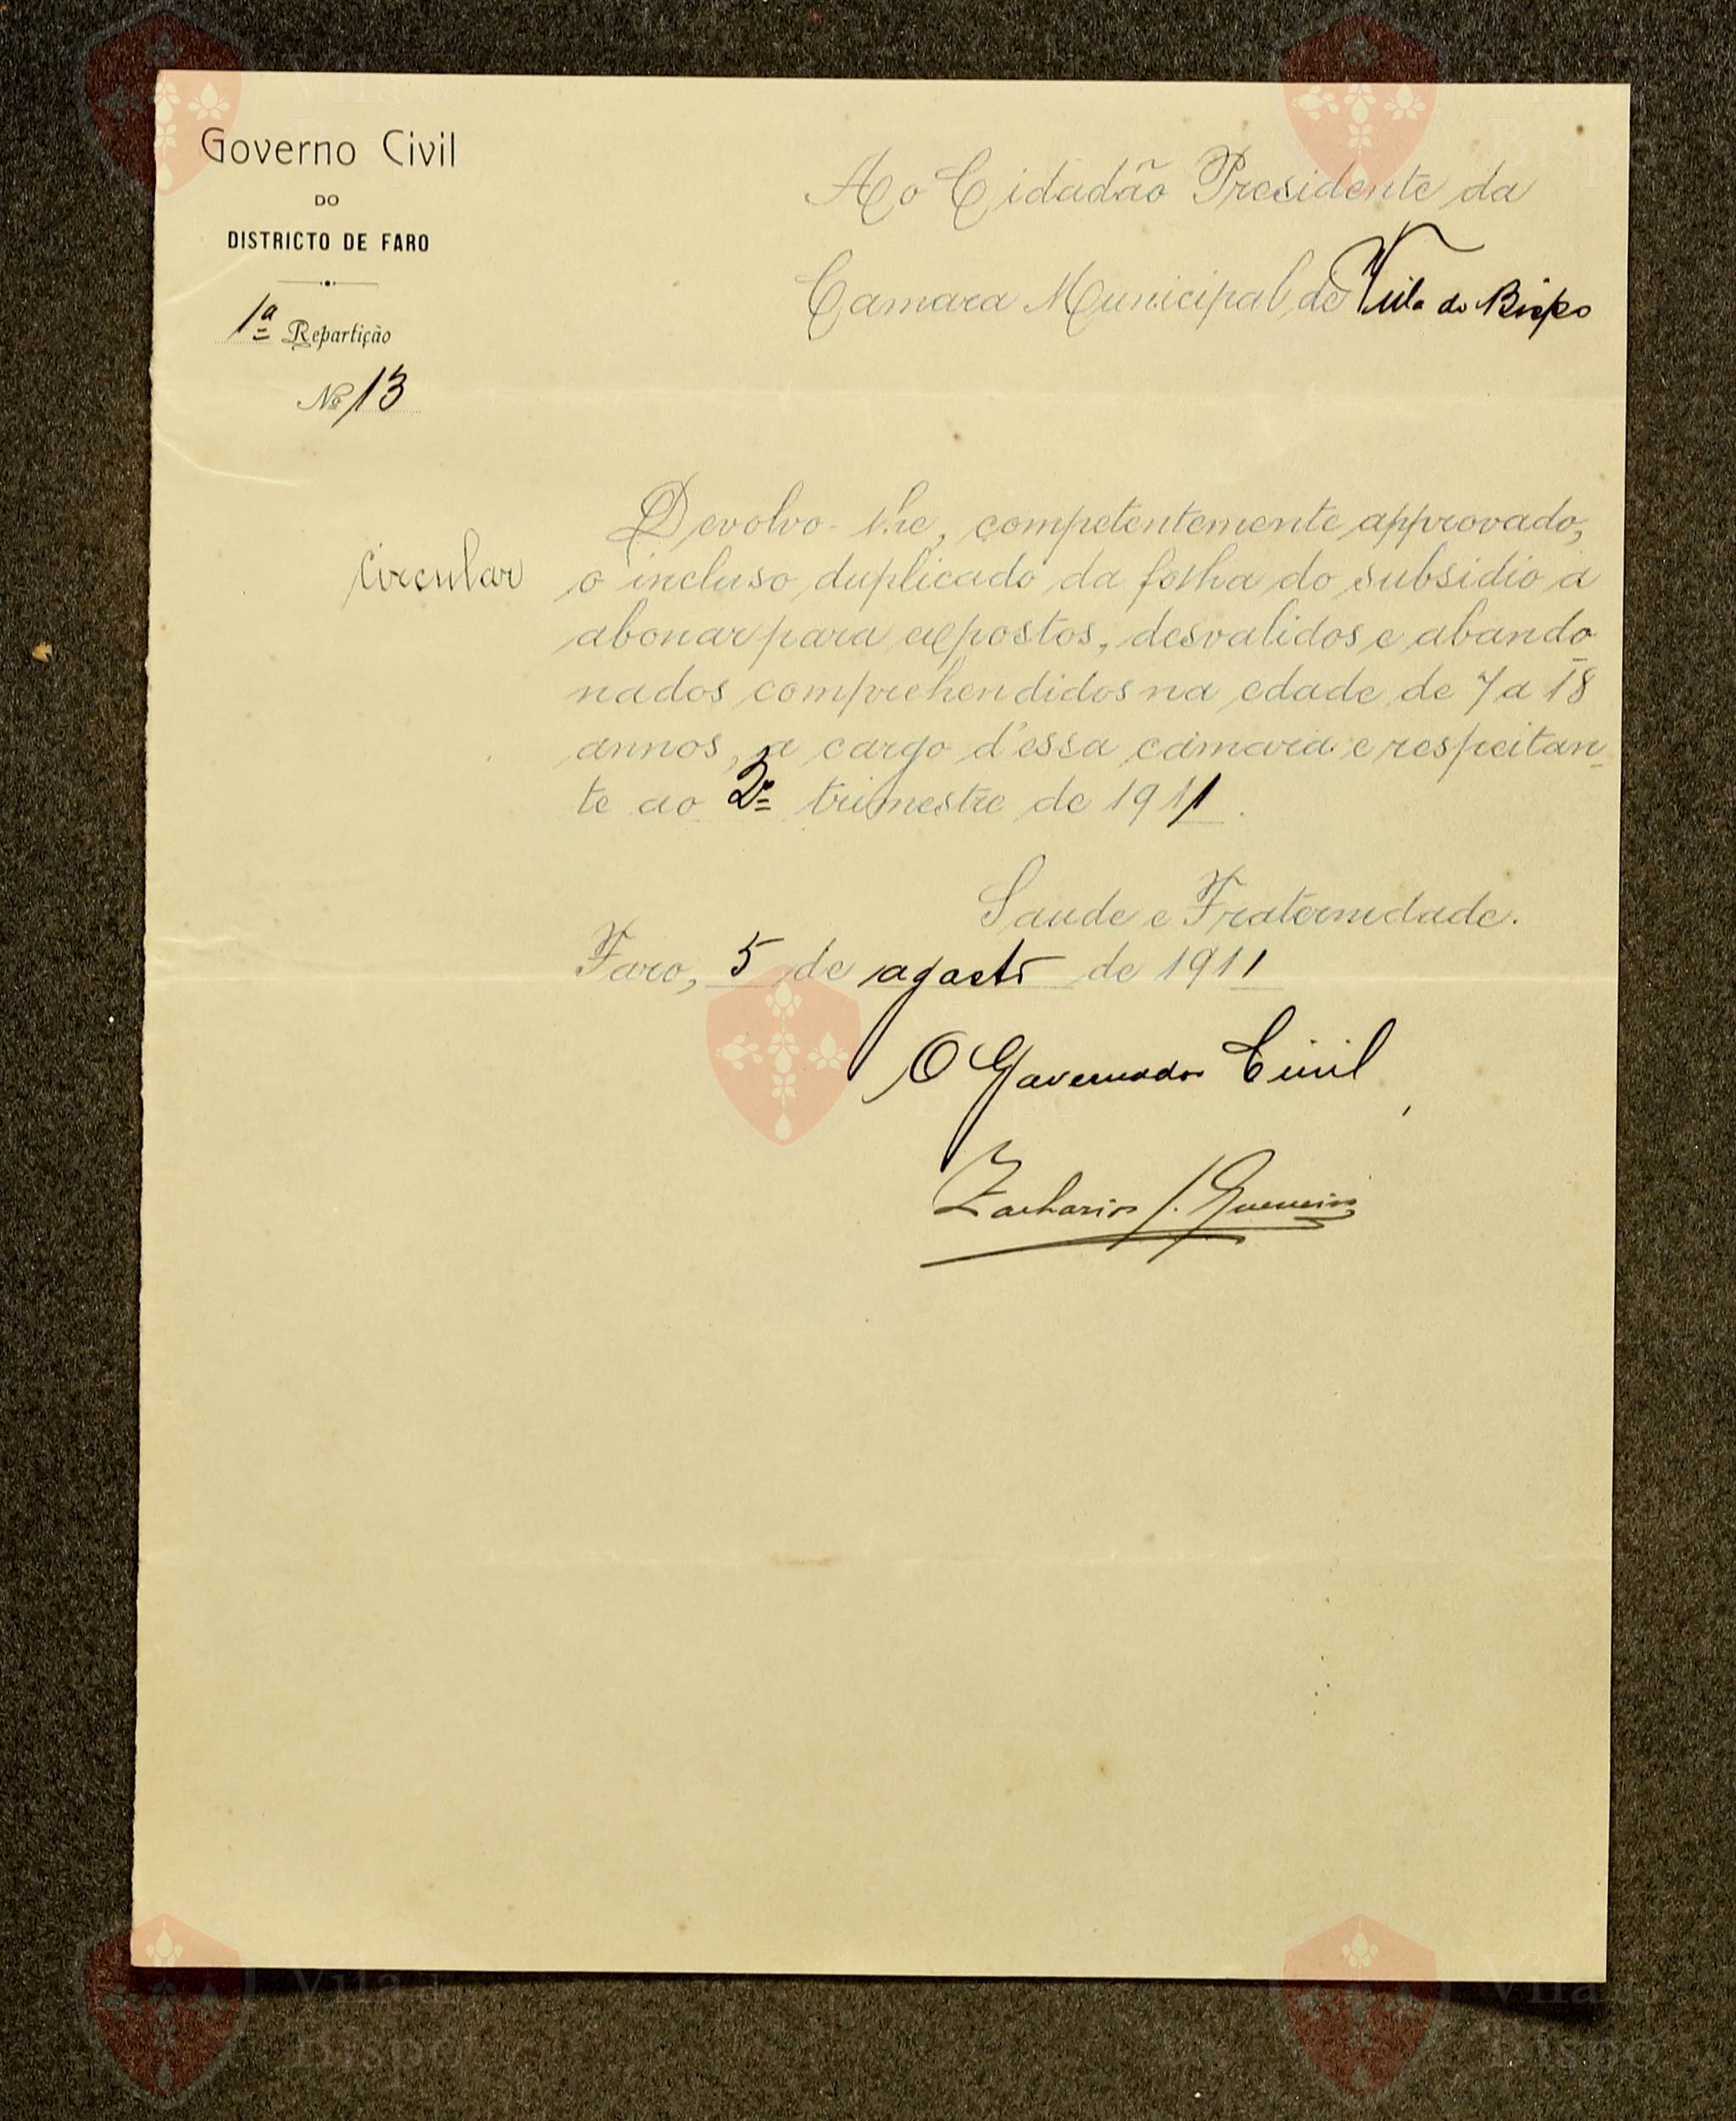 Governo Civil
DO
DISTRICTO DE FARO
1ª Repartição
Nº 13
Ao Cidadão Presidente da
Camara Municipal de Villa do Bispo
Circular
Devolvo-lhe, competentemente approvado,
o incluso duplicado da folha do subsidio a
abonar para expostos, desvalidos e abando
nados comprehendidos na edade de 7 a 18
annos, a cargo d'essa camara e respeitan-
te ao 2º trimestre de 1911.
Saude e Fraternidade.
Faro, 5 de agosto de 1911
O Governador Civil
Zacharias J. Guerreiro
Vila do
Bispo